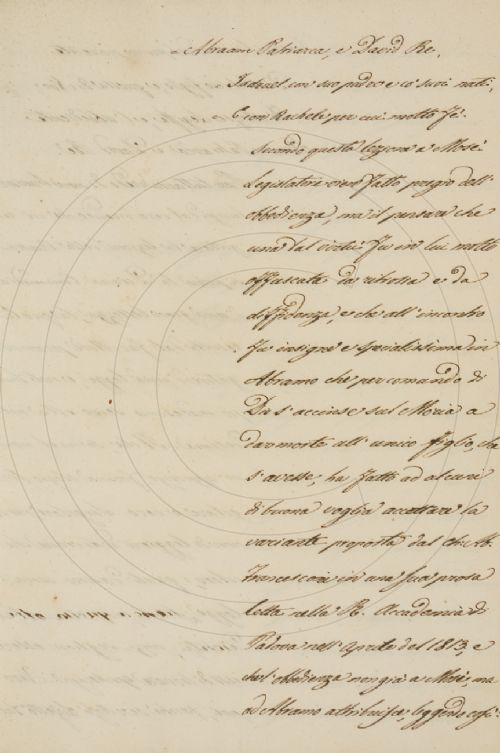 Abraam Patriarca, e David Re,
Isdrael con suo padre e co' suoi nati,
E con Rachele per cui molto fè.
Secondo questa lezione a Mosè
Legislatore vien fatto pregio dell'
obbedienza, ma il pensare che
una tal virtù fu in lui molto
offuscata da ribotta e da
diffidenza, e che all' incontro
fu insigne e specialissima in
Abramo che per comando di
Dio s' accinse sul Moria a
dar morte all' unico figlio, che
s' avesse, ha fatto ad alcuni
di buona voglia accettare la
variante proposta dal Ch. Ab.
Francesconi in una sua prosa
letta nella R. Accademia di
Padova nell' Aprile del 1813, e
che l' obbedienza non già a Mosè, ma
ad Abramo attribuisce, leggendo così: